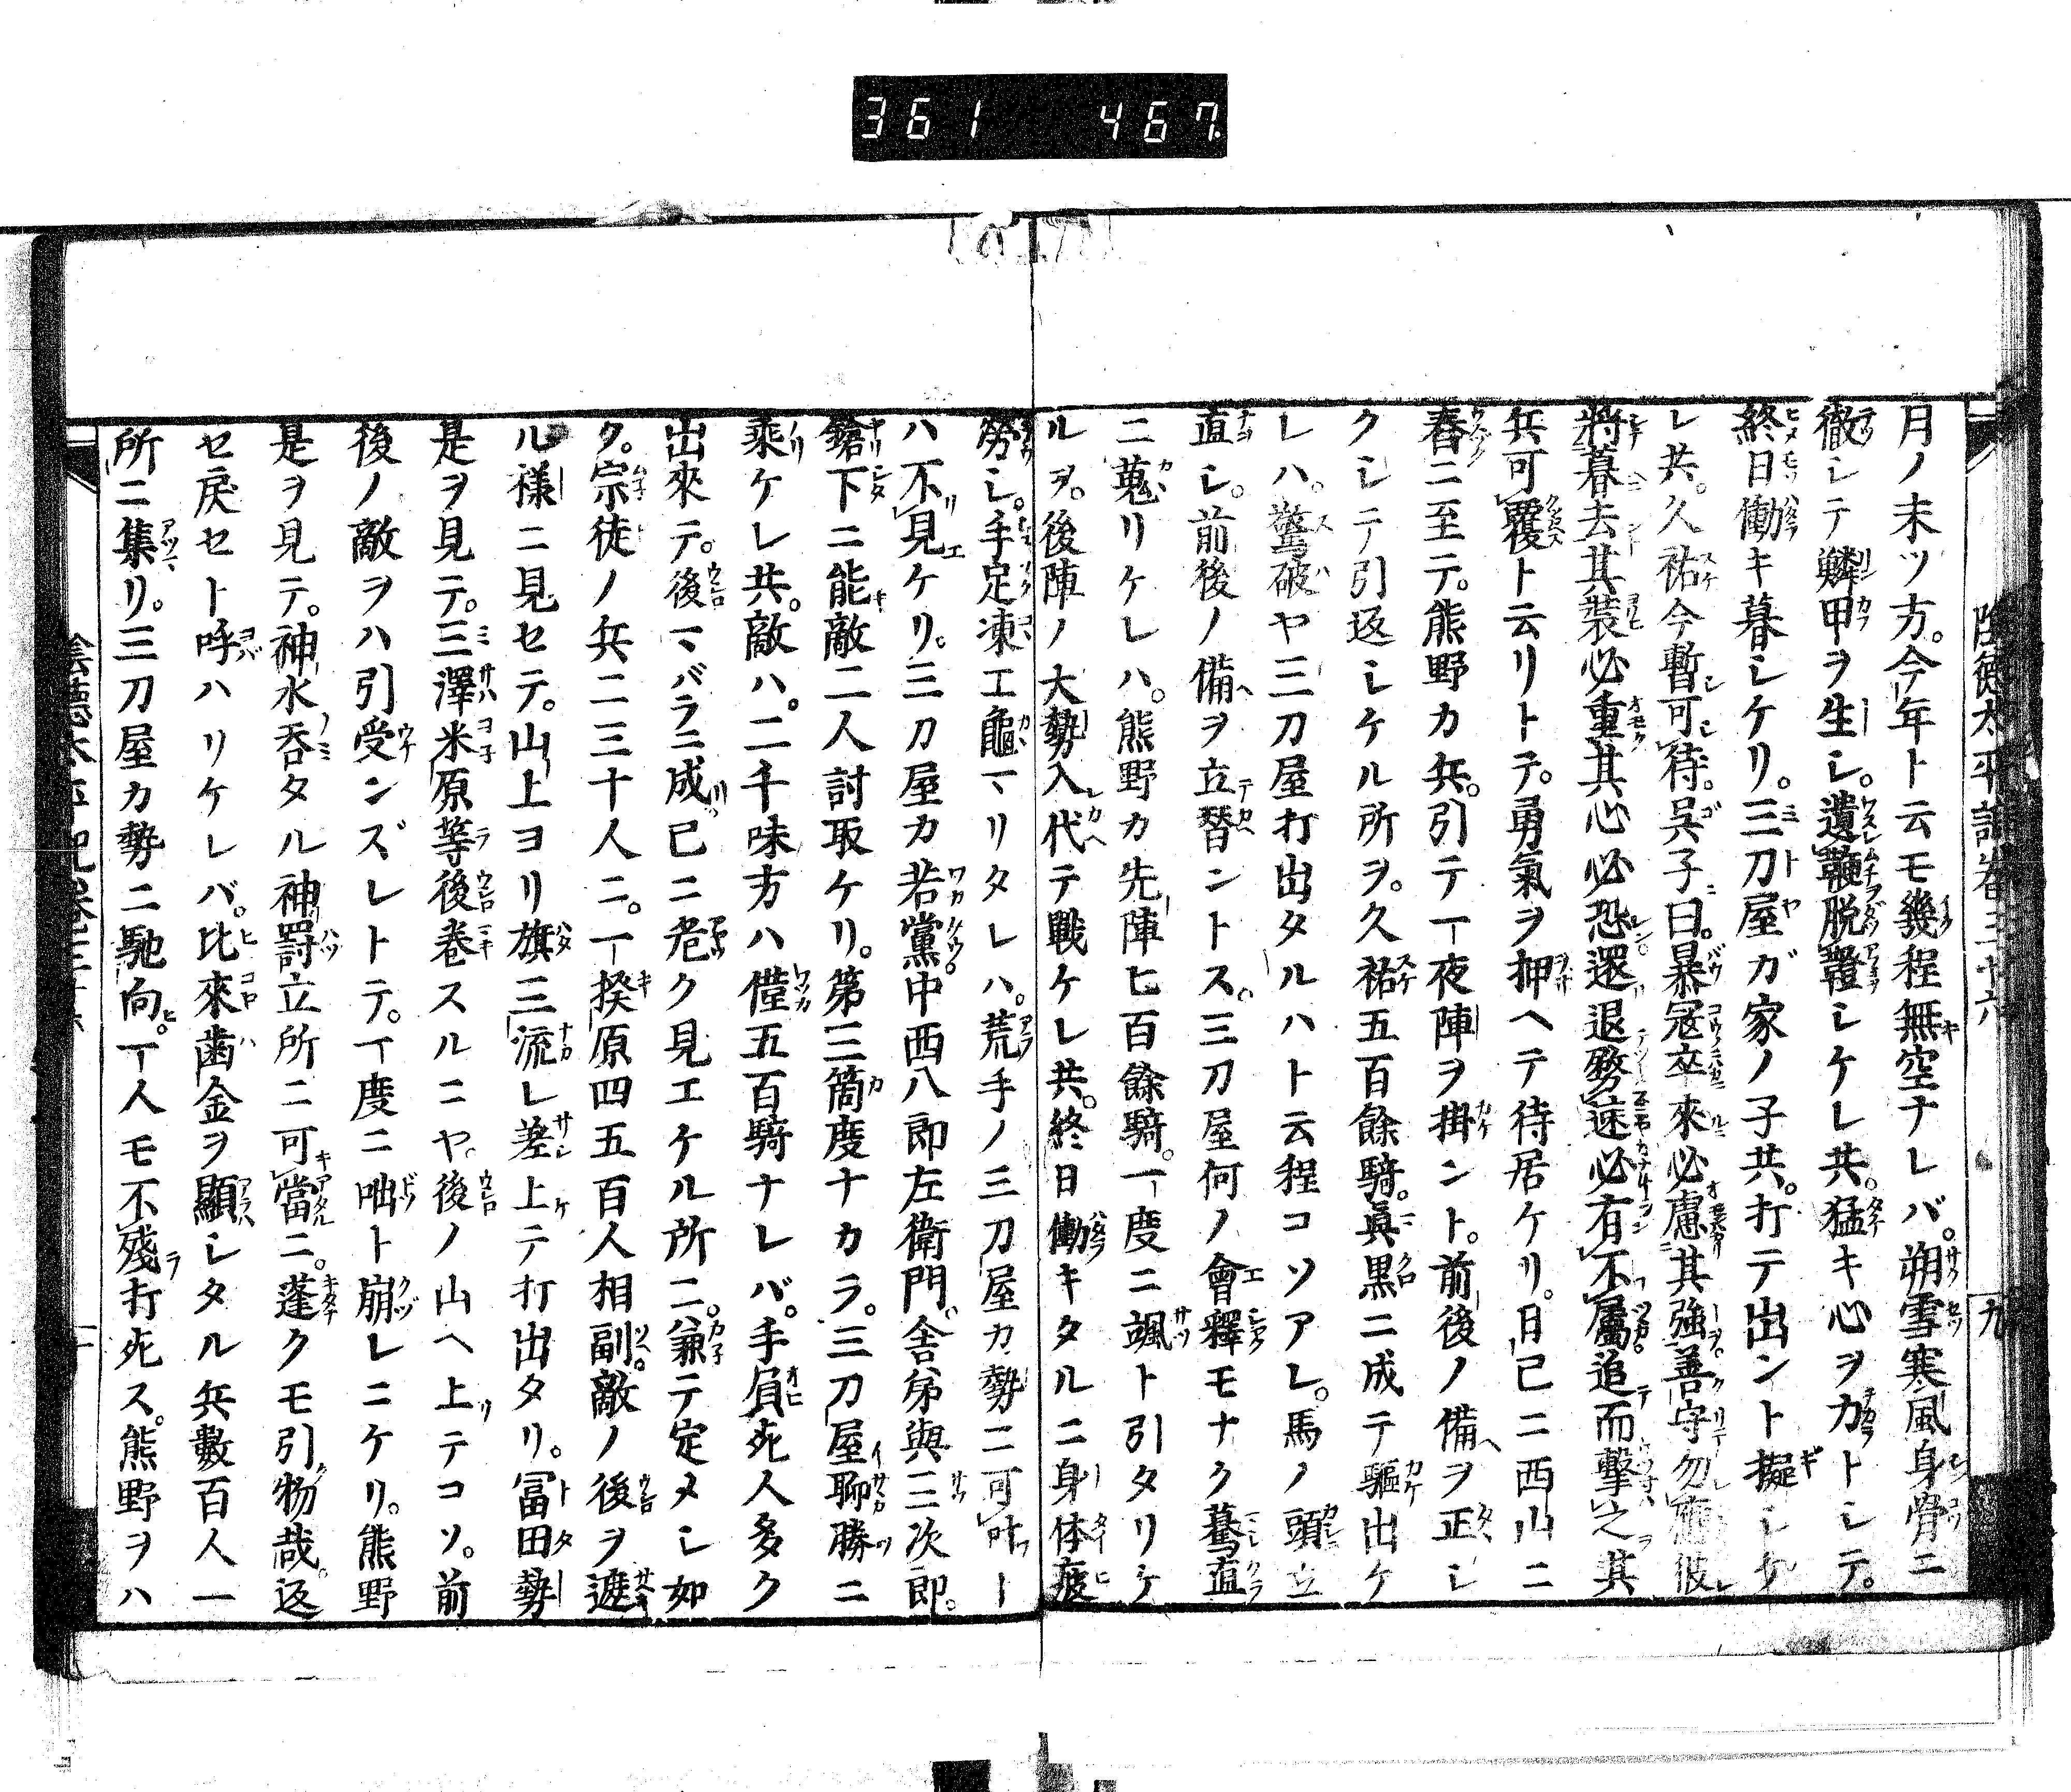 361 467.
陰徳太平記卷三十六 九
月ノ末ツ方。今年ト云モ幾程無空ナレバ。朔雪寒風身骨ニ
徹シテ鱗甲ヲ生シ。遺鞭脱鐙シケレ共。猛キ心ヲカトシテ。
終日働キ暮シケリ。三刀屋ガ家ノ子共。打テ出ント擬シケ
レ共。久祐今暫可待。呉子曰。暴冦卒來必慮其強善守勿應彼
將暮去其装必重其心必恐還退務速必有不屬追而擊之其
兵可覆ト云リトテ。勇氣ヲ押ヘテ待居ケリ。日已ニ西山ニ
舂ニ至テ。熊野カ兵。引テ一夜陣ヲ掛ント。前後ノ備ヲ正シ
クシテ引返シケル所ヲ。久祐五百餘騎。眞黒ニ成テ驅出ケ
レハ。驚破ヤ三刀屋打出タルハト云程コソアレ。馬ノ頭立
直シ。前後ノ備ヲ立替ントス。三刀屋何ノ會釋モナク驀直
ニ蒐リケレハ。熊野カ先陣七百餘騎。一度ニ颯ト引タリケ
ルヲ。後陣ノ大勢入代テ戰ケレ共。終日働キタルニ身体疲
勞シ。手足凍エ龜マリタレハ。荒手ノ三刀屋カ勢ニ可叶ト
ハ不見ケリ。三刀屋カ若黨中西八郎左衛門。舎弟與三次郎。
鎗下ニ能敵二人討取ケリ。第三箇度ナカラ。三刀屋聊勝ニ
乘ケレ共。敵ハ。二千味方ハ僅五百騎ナレバ。手負死人多ク
出來テ。後マバラニ成已ニ危ク見エケル所ニ。兼テ定メシ如
ク。宗徒ノ兵二三十人ニ。一揆原四五百人相副。敵ノ後ヲ遮
ル様ニ見セテ。山上ヨリ旗三流レ差上テ打出タリ。冨田勢
是ヲ見テ。三澤米原等後卷スルニヤ。後ノ山ヘ上テコソ。前
後ノ敵ヲハ引受ンズレトテ。一度ニ咄ト崩レニケリ。熊野
是ヲ見テ。神水呑タル神罸立所ニ可當ニ。蓬クモ引物哉。返
セ戻セト呼ハリケレバ。比來齒金ヲ顯シタル兵數百人一
所ニ集リ。三刀屋カ勢ニ馳向。一人モ不殘打死ス。熊野ヲハ
陰德太平記卷三十六 十